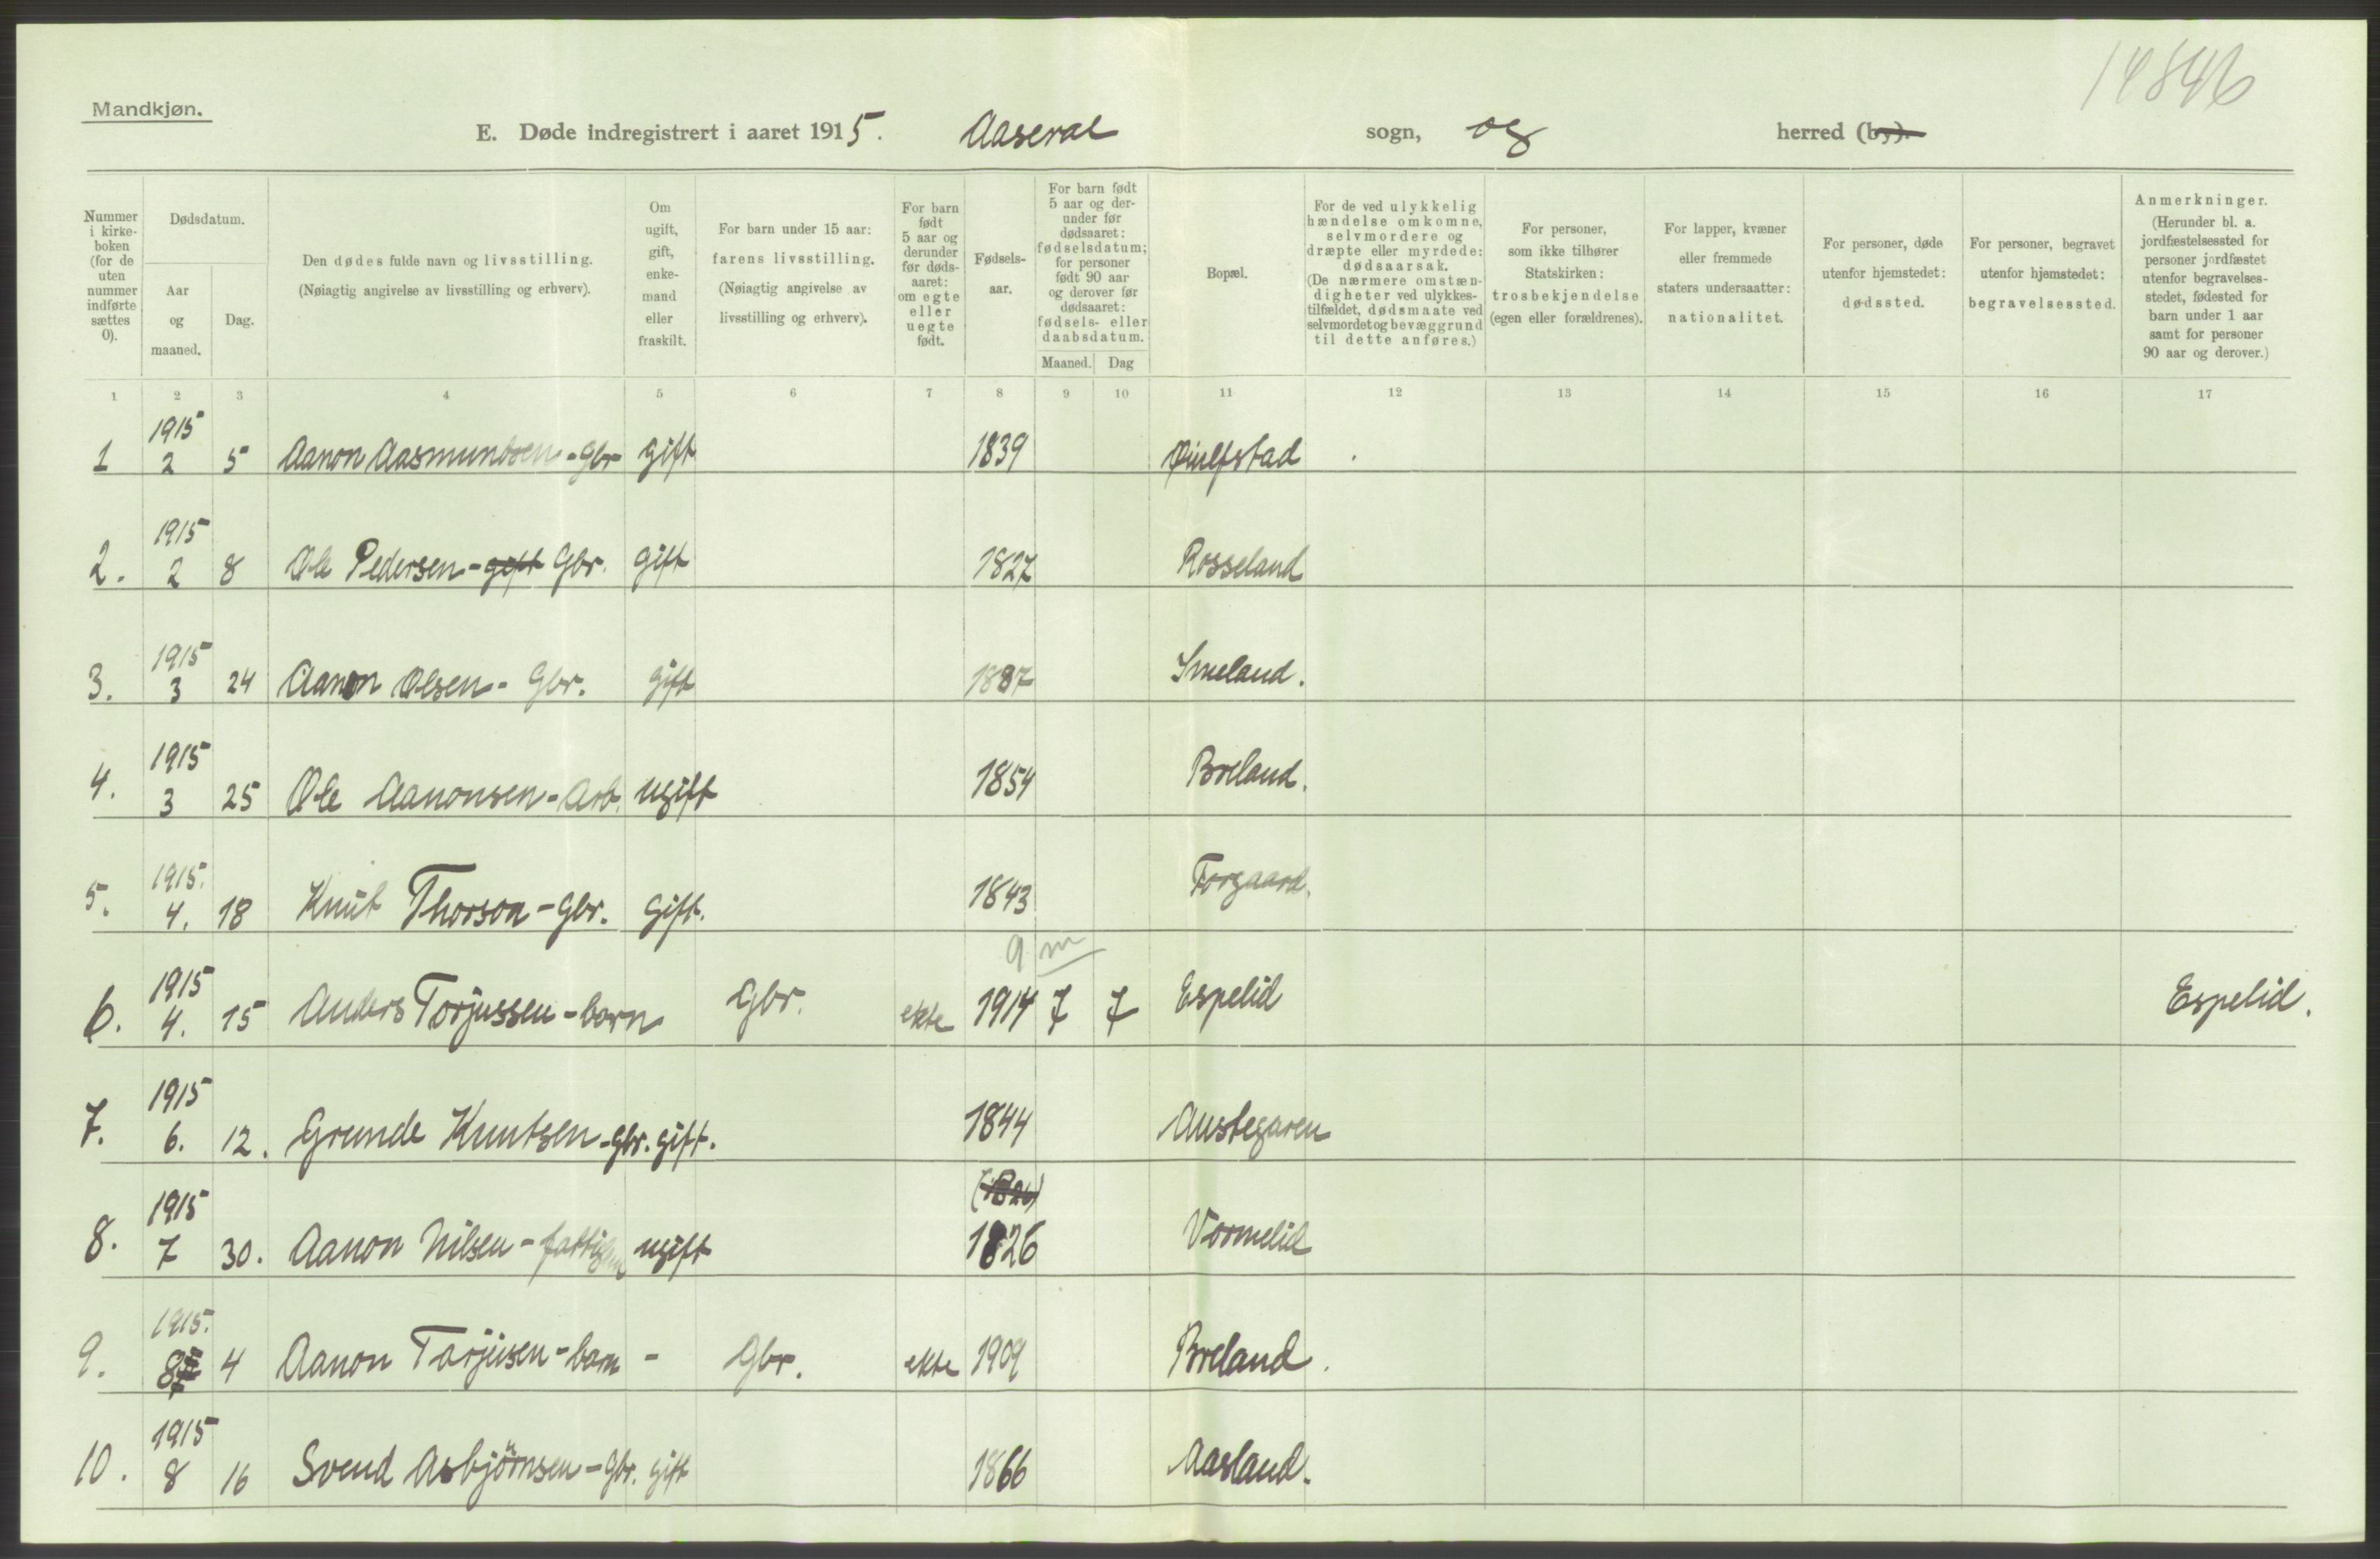 14846
Mandkjøn.
E. Døde indregistrert i aaret 1915. Aaseral sogn, og herred (by).
Nummer i kirke-boken (for de uten nummer indførte sættes 0).
Dødsdatum.
Aar og maaned.
Dag.
Den dødes fulde navn og livsstilling.
(Nøiagtig angivelse av livsstilling og erhverv).
Om ugift, gift, enke-mand eller fraskilt.
For barn under 15 aar:
farens livsstilling.
(Nøiagtig angivelse av livsstilling og erhverv).
For barn født 5 aar og derunder før døds-aaret: om egte eller uegte født.
Fødsels-aar.
For barn født 5 aar og der-under før dødsaaret: fødselsdatum; for personer født 90 aar og derover før dødsaaret: fødsels- eller daabsdatum.
Maaned. Dag
Bopæl.
For de ved ulykkelig hændelse omkomne, selvmordere og dræpte eller myrdede: dødsaarsak.
(De nærmere omstæn-digheter ved ulykkes-tilfældet, dødsmaate ved selvmordet og bevæggrund til dette anføres.)
For personer, som ikke tilhører Statskirken: trosbekjendelse (egen eller forældrenes).
For lapper, kvæner eller fremmede staters undersaatter: nationalitet.
For personer, døde utenfor hjemstedet: dødssted.
For personer, begravet utenfor hjemstedet: begravelsessted.
Anmerkninger.
(Herunder bl. a. jordfæstelsessted for personer jordfæstet utenfor begravelses-stedet, fødested for barn under 1 aar samt for personer 90 aar og derover.)
1 2 3 4 5 6 7 8 9 10 11 12 13 14 15 16 17
1915
1 2 5 Aanon Aasmundsen - Gbr gift 1839 Øiulfstad
1915
2. 2 8 Ole Pedersen - gift Gbr. gift 1827 Rosseland
1915
3. 3 24 Aanon Olsen - Gbr. gift 1837 Smeland.
1915
4. 3 25 Ole Aanonsen - Arb. ugift 1854 Breland.
1915.
5. 4. 18 Knut Thorson - gbr. gift. 1843 Forgaard.
9 m
1915
6. 4. 15 Anders Torjussen - barn Gbr. ekte 1914 7 7 Espelid Espelid.
1915
7. 6. 12. Grunde Knutsen - gbr. gift. 1844 Austegaren
(1826)
1915
8. 7 30. Aanon Nilsen - ugift 1826 Vormelid
1915.
9. 8 4 Aanon Tarjusen - barn - Gbr. ekte 1909 Breland.
1915
10. 8 16 Svend Asbjörnsen - gbr. gift 1866 Aasland.